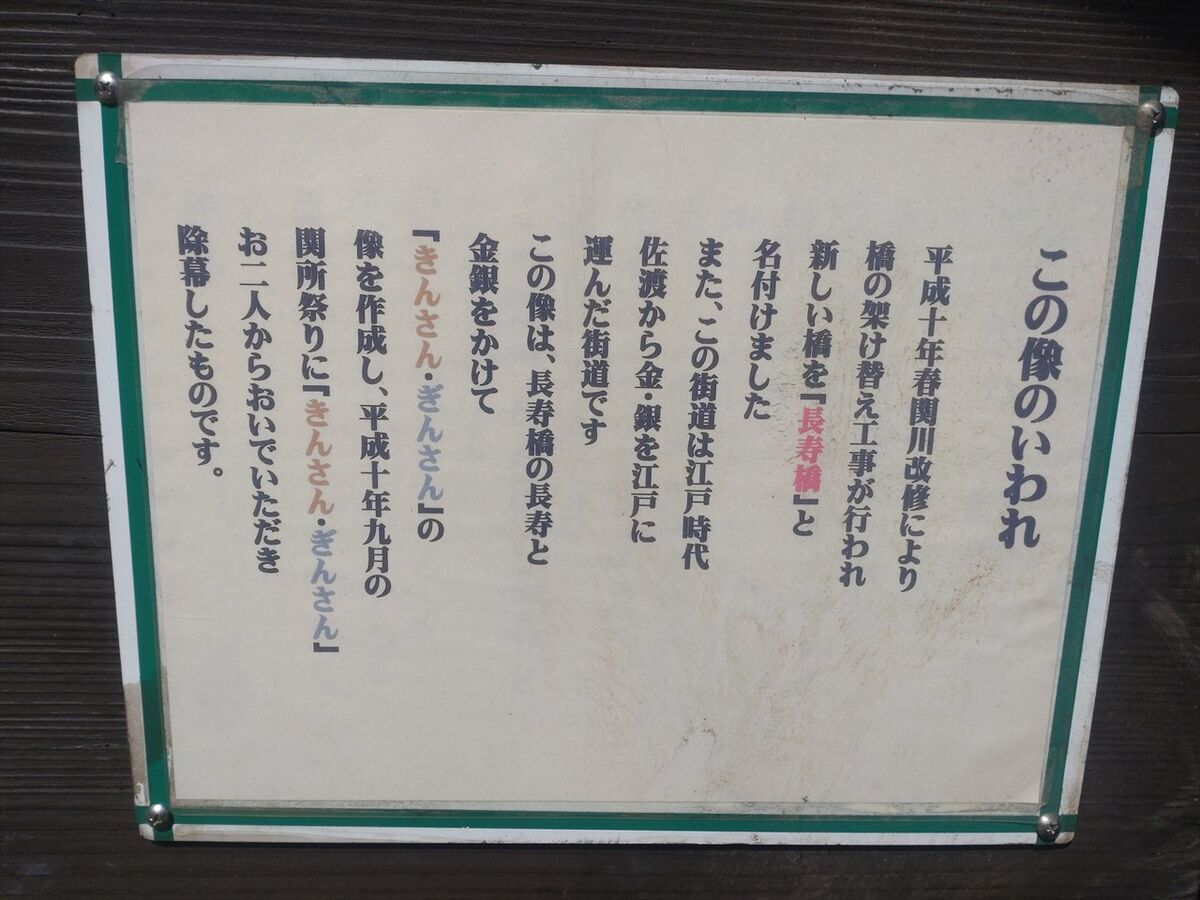 この像のいわれ
平成十年春関川改修により
橋の架け替え工事が行われ
新しい橋を『長寿橋』と
名付けました
また、この街道は江戸時代
佐渡から金・銀を江戸に
運んだ街道です
この像は、長寿橋の長寿と
金銀をかけて
『きんさん・ぎんさん』の
像を作成し、平成十年九月の
関所祭りに『きんさん・ぎんさん』
お二人からおいでいただき
除幕したものです。